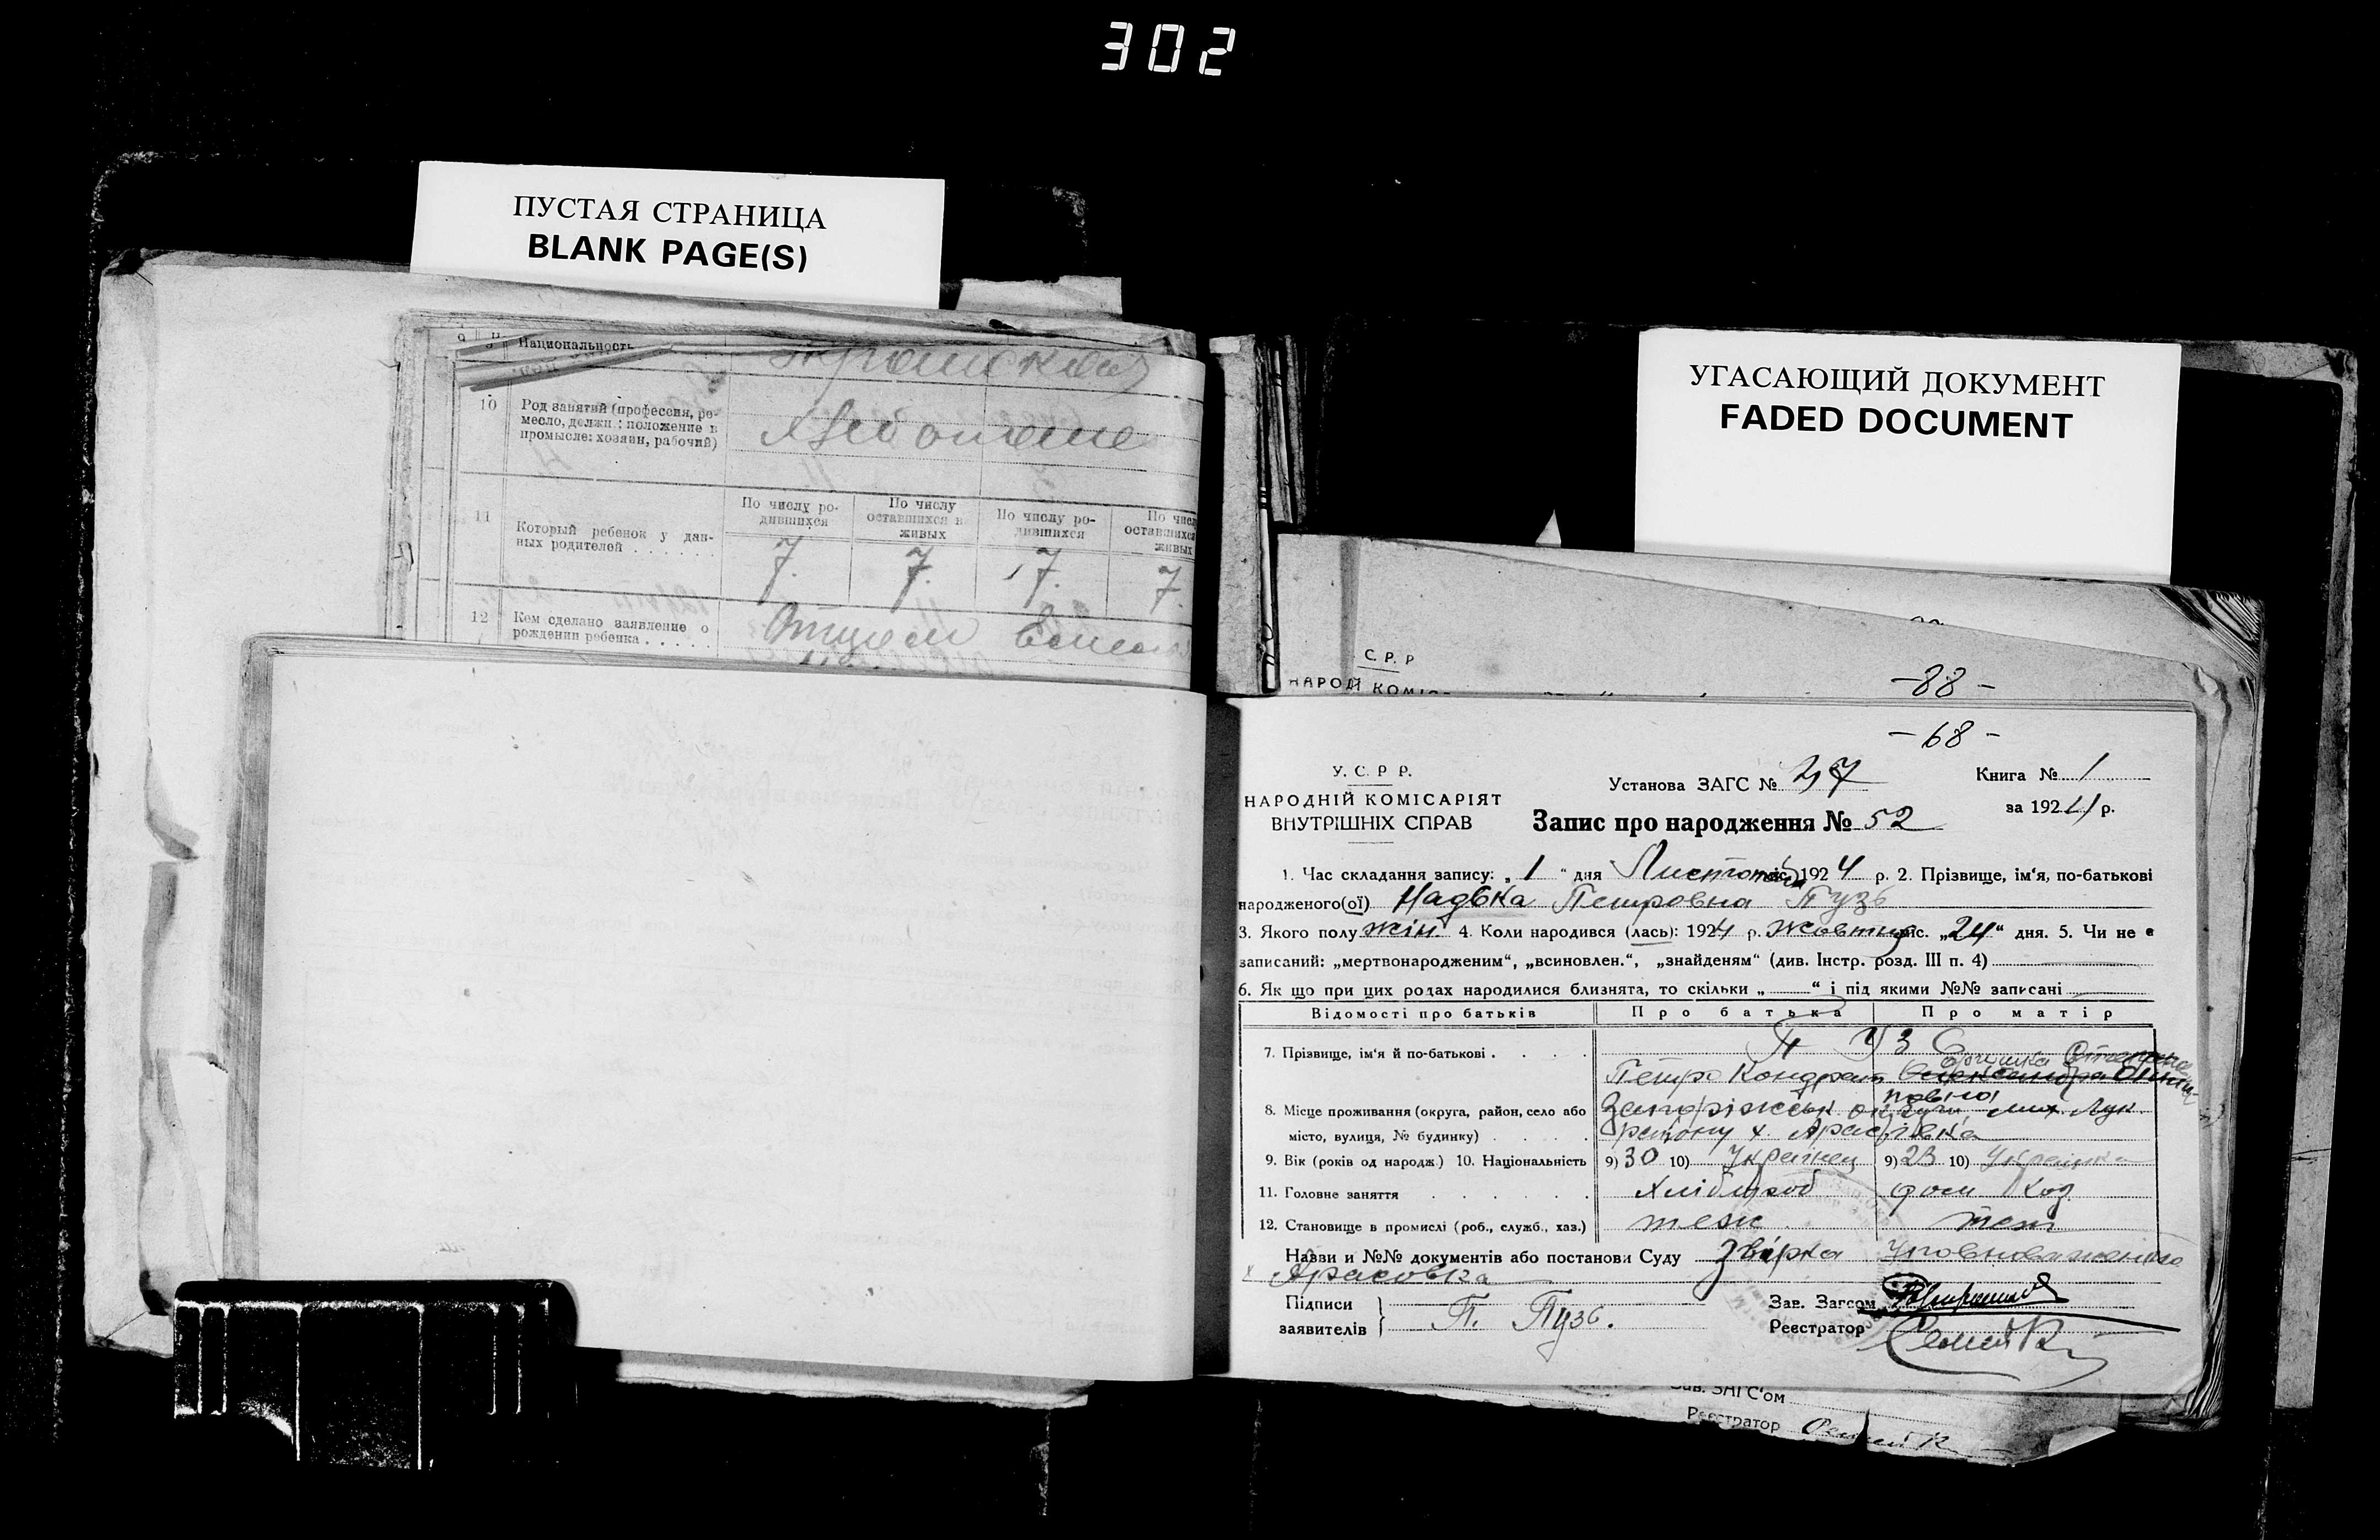 302
ПУСТАЯ СТРАНИЦА
BLANK PAGE(S)
УГАСАЮЩИЙ ДОКУМЕНТ
FADED DOCUMENT
9 Национальность
10 Род занятий (профессия, ре-
месло, должн.: положение в
промысле: хозяин, рабочий)
11 Который ребенок у дан-
ных родителей
По числу ро-
дившихся
По числу
оставшихся в
живых
По числу ро-
дившихся
По числ
оставшихся
живых
7. 7. 7. 7.
12 Кем сделано заявление о
рождении ребенка
Отцем
С. Р. Р
НАРОД КОМІС
-88-
-68-
У. С. Р Р.
НАРОДНІЙ КОМІСАРІЯТ
ВНУТРІШНІХ СПРАВ
Установа ЗАГС №
Книга № 1
за 1924 р.
Запис про народження № 52
1. Час складання запису: „ 1 “ дня Листопада міс. 1924 р. 2. Прізвище, ім‘я, по-батькові
народженого(ої) Надька Петровна Пузь
3. Якого полу жін. 4. Коли народився (лась): 1924 р. Жовтня міс. „24“ дня. 5. Чи не є
записаний: „мертвонародженим“, „всиновлен.“, „знайденям“ (див. Інстр. розд. III п. 4)
6. Як що при цих родах народилися близнята, то скільки „ “ і під якими №№ записані
Відомості про батьків Про батька Про матір
7. Прізвище, ім‘я й по-батькові . Пузь
Петро Кондрат
8. Місце проживання (округа, район, село або
місто, вулиця, № будинку) Запоріжськ округи
району х.
9. Вік (років од народж.) 10. Національність 9) 30 10) Українец 9) 23 10) Українка
11. Головне заняття Хлібороб дом ход
12. Становище в промислі (роб., служб., хаз.) теж теж
Назви и №№ документів або постанови Суду Звірка Уповноваженого
х
Підписи
заявителів П. Пузь.
Зав. Загсом
Реєстратор
Зав. ЗАГС‘ом
Реєстратор